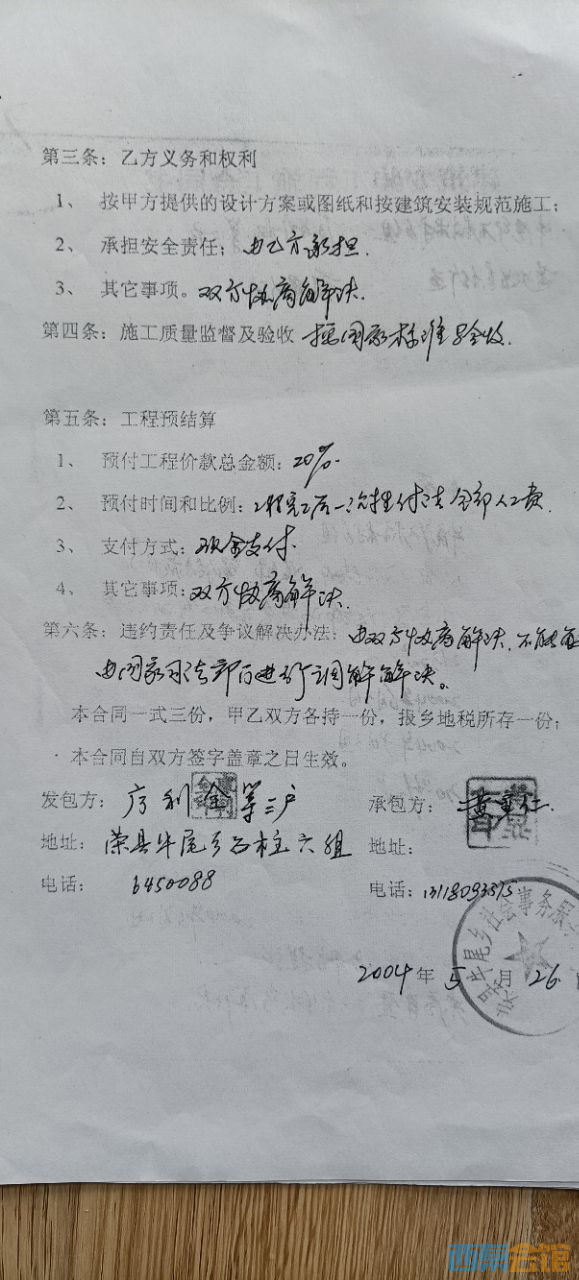 第三条：乙方义务和权利
1、 按甲方提供的设计方案或图纸和按建筑安装规范施工；
2、 承担安全责任；由乙方承担.
3、 其它事项。双方协商解决.
第四条：施工质量监督及验收 按国家标准验收.
第五条：工程预结算
1、 预付工程价款总金额：20%.
2、 预付时间和比例：工程完工后一次性付清全部人工费.
3、 支付方式：现金支付.
4、 其它事项：双方协商解决.
第六条：违约责任及争议解决办法：由双方协商解决.不能
由国家司法部门进行调解解决。
本合同一式三份，甲乙双方各持一份，报乡地税所存一份；
本合同自双方签字盖章之日生效。
发包方： 利金等三户 承包方：
地址： 荣县牛尾乡石柱六组 地址：
电话： 6450088 电话：
牛尾乡社会事务服
2004年5月26
西票会馆